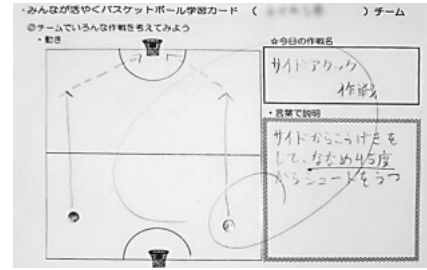 ・みんなが活やくバスケットボール学習カード （　　　）チーム
◎チームでいろんな作戦を考えてみよう
・動き
☆今日の作戦名
サイドアタック
作戦
・言葉で説明
サイドからこうげきを
して、ななめ45度
からシュートをうつ